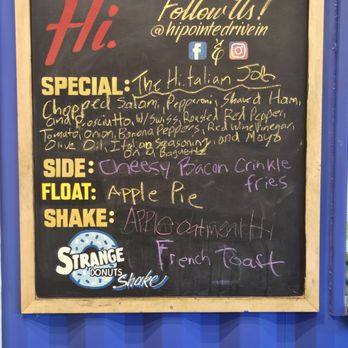 Hi.
Follow Us!
@hipointedrivein
f &
SPECIAL: The Hitalian Job
Chopped Salami, Pepperoni, Shaved Ham,
and Prosciutto, W/Swiss, Roasted Red Pepper,
Tomato, Onion, Banana Peppers, Red Wine Vinegar,
Olive Oil, Italian Seasoning, and Mayo
On a Baguette
SIDE: Cheesy Bacon Crinkle
fries
FLOAT: Apple Pie
SHAKE: APPLE oatmeal
French Toast
STRANGE
DONUTS
Shake